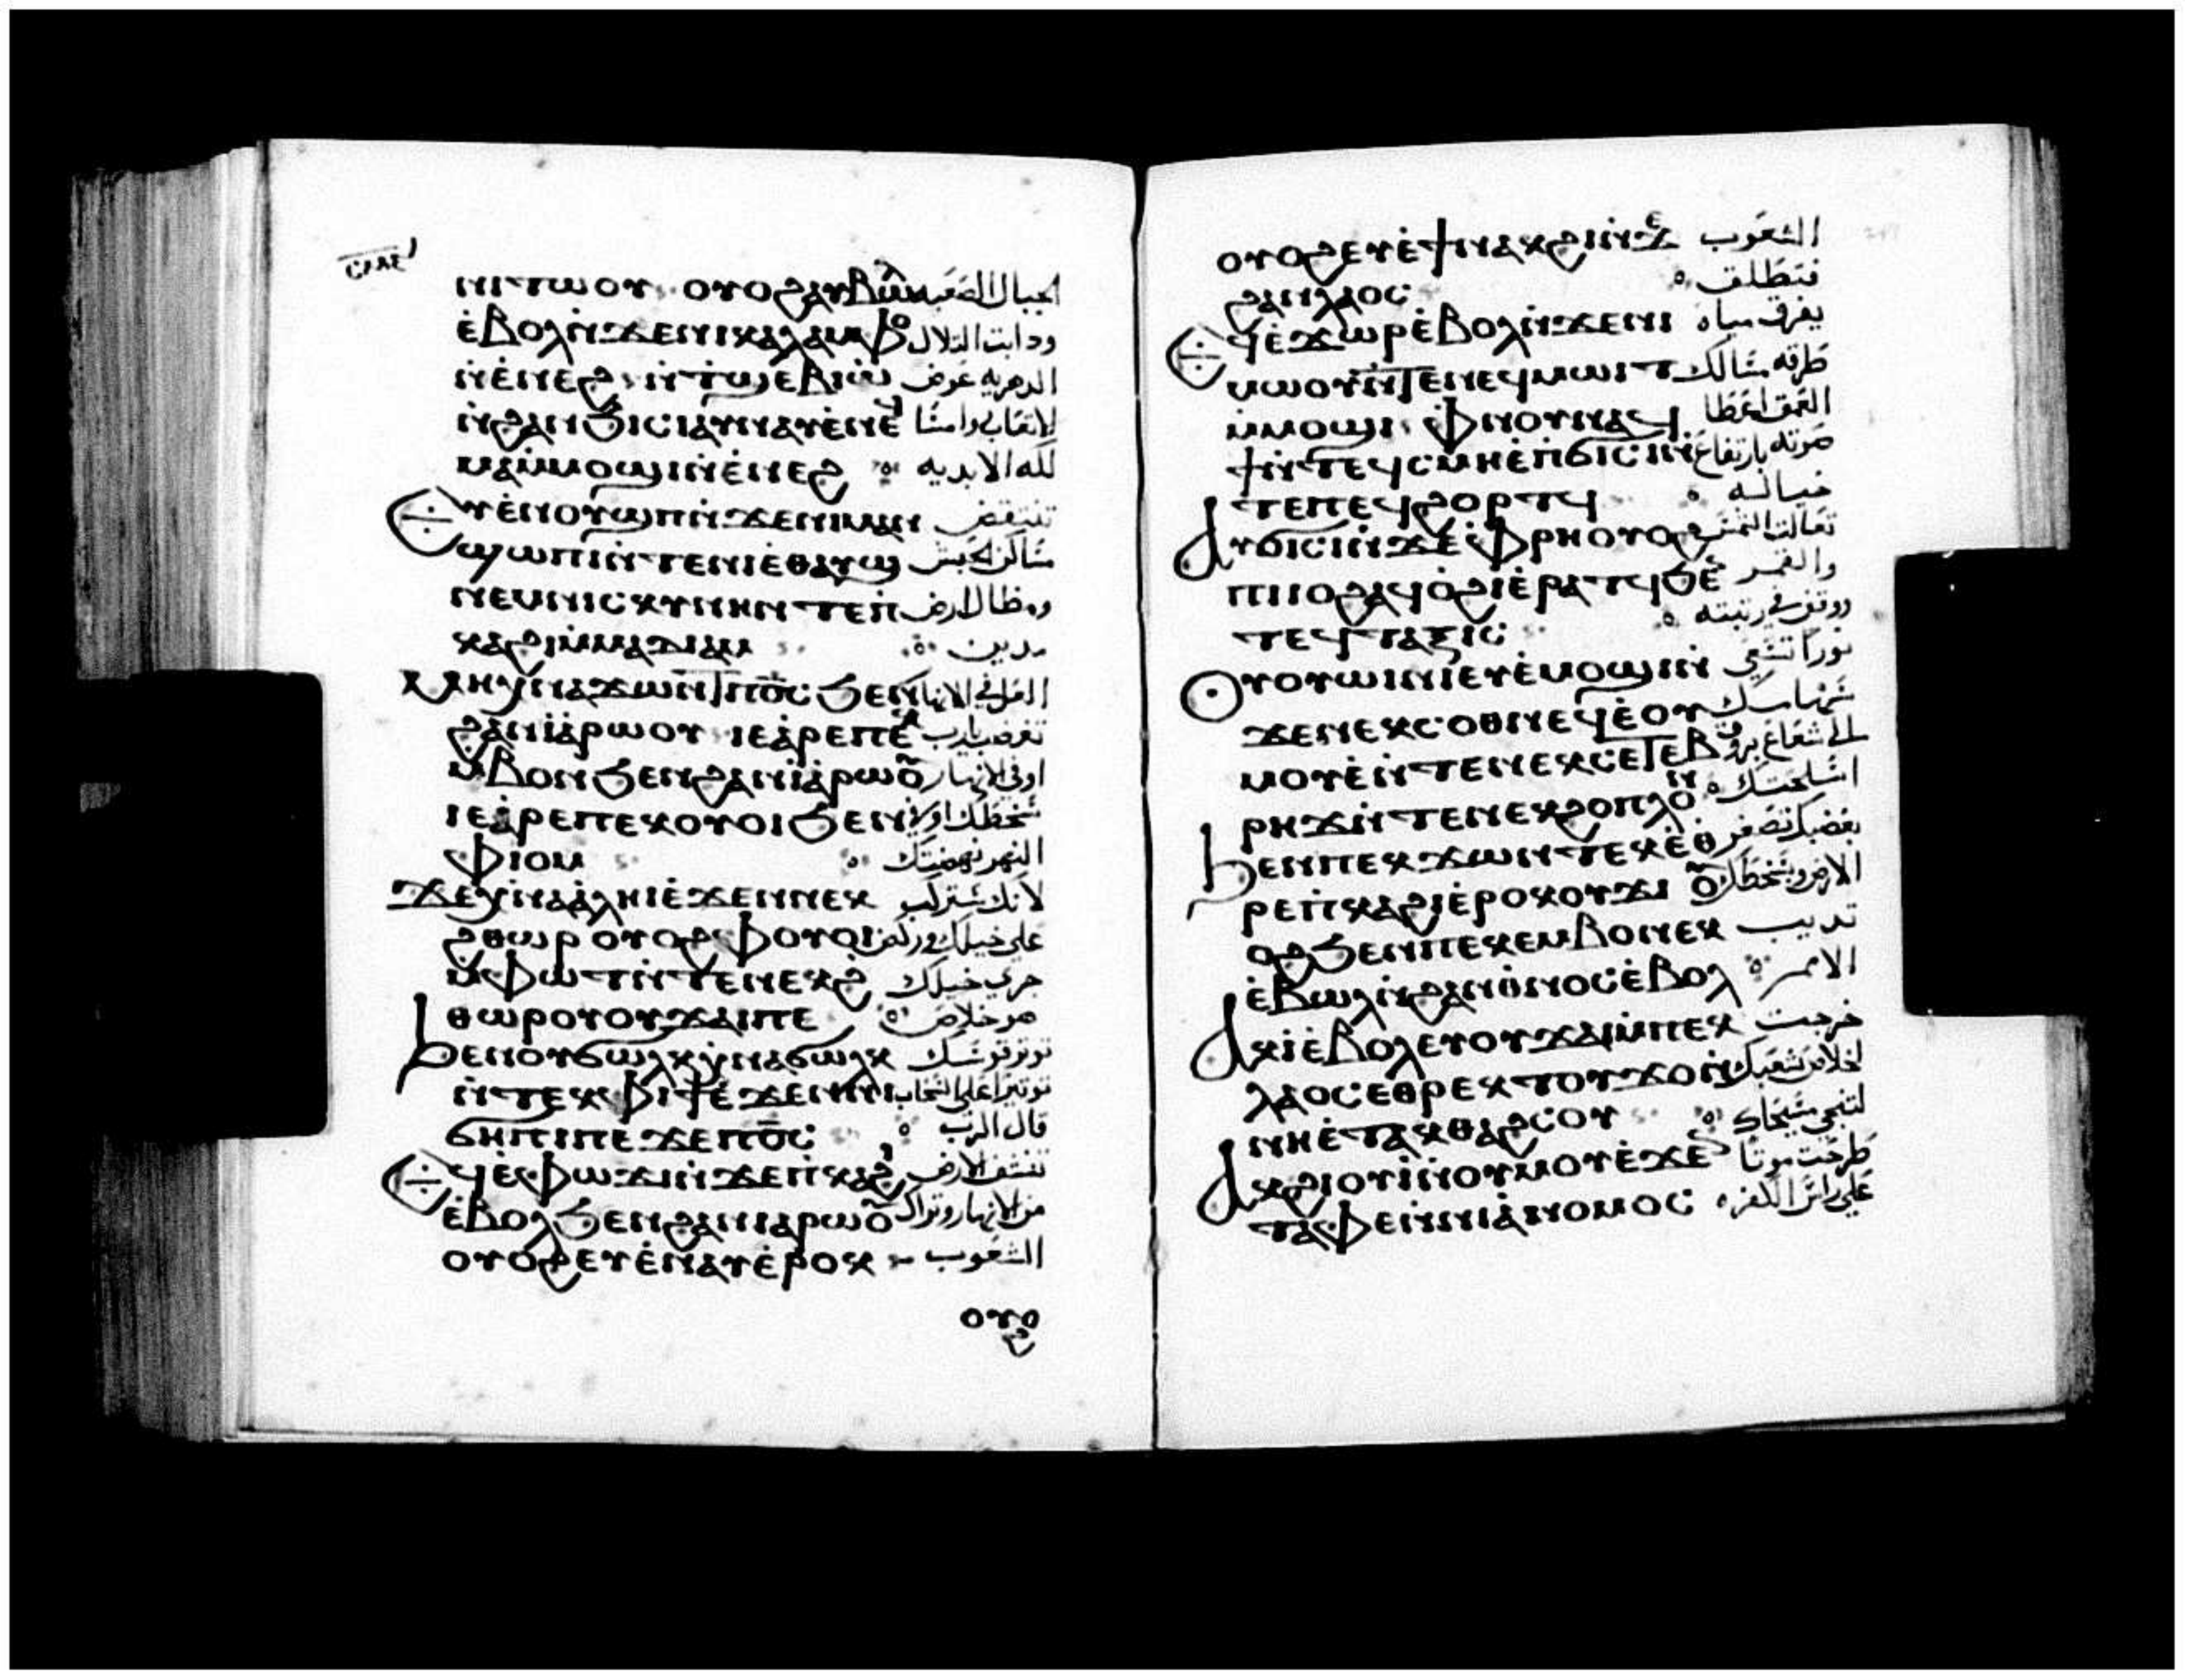 ⲛⲓⲧⲱⲟⲩ ⲟⲩⲟϩ ⲁⲩⲃⲱⲗ الجبال الصعبه
ⲉ̀ⲃⲟⲗ ⲛ̀ϫⲉⲛⲓⲕⲁⲗⲁⲙⲫⲟ ودابت التلال
ⲛ̀ⲉ̀ⲛⲉϩ ⲛ̀ⲧϣⲉⲃⲓⲱ̀ الدهريه عوض
ⲛ̀ϩⲁⲛϭⲓⲥⲓ ⲁⲩⲛⲁⲩ ⲉ̀ⲛⲉϥ
ⲙⲁⲙ̀ⲙⲟϣⲓ ⲛ̀ⲉ̀ⲛⲉϩ لكه الابديه
ⲉⲩⲉ̀ⲛⲟⲩϣⲡ ⲛ̀ϫⲉⲛⲓⲙⲁⲛ
ϣⲱⲡⲓ ⲛ̀ⲧⲉⲛⲓⲉ̀ⲑⲁⲩϣ مساكن الحبش
ⲛⲉⲙⲛⲓⲥⲕⲩⲛⲏ ⲛ̀ⲧⲉⲡ̀ ومظال ارض
ⲕⲁϩⲓ ⲙ̀ⲙⲁⲇⲓⲁⲙ مدين
ⲙⲏ ⲭ̀ⲛⲁϫⲱⲛⲧ ⲡϭⲥ ϧⲉⲛ
ϩⲁⲛⲓⲁ̀ⲣⲱⲟⲩ ⲓⲉ ⲁ̀ⲣⲉⲡⲉⲕ تغضب يارب
ⲙ̀ⲃⲟⲛ ϧⲉⲛϩⲁⲛⲓⲁ̀ⲣⲱⲟⲩ اوفى الانهار
ⲓⲉ ⲁ̀ⲣⲉⲡⲉⲕⲟⲩⲟⲓ ϧⲉⲛ
ⲫⲓⲟⲙ النهر نهضتك
ϫⲉⲭ̀ⲛⲁⲁ̀ⲗⲏⲓ ⲉ̀ϫⲉⲛⲛⲉⲕ لانك ستركب
ϩⲑⲱⲣ ⲟⲩⲟϩ ⲫⲟⲩⲟⲓ على خيلك وركض
ⲙ̀ⲫⲱⲧ ⲛ̀ⲧⲉⲛⲉⲕϩ̀ جري خيلك
ⲑⲱⲣ ⲟⲩⲟⲩϫⲁⲓ ⲡⲉ هو خلاص
ϧⲉⲛ ⲟⲩϭⲱⲗⲕ ⲭ̀ⲛⲁϭⲱⲗⲕ توتر قوسك
ⲛ̀ⲧⲉⲕⲫⲓϯ ⲉ̀ϫⲉⲛⲛⲓ
ϭⲏⲡⲓ ⲡⲉϫⲉⲡϭⲥ قال الرب
ⲉϥⲉ̀ⲫⲱϫⲓ ⲛ̀ϫⲉⲡ̀ⲕⲁϩⲓ تنشق الارض
ⲉ̀ⲃⲟⲗ ϧⲉⲛϩⲁⲛⲓⲁⲣⲱⲟⲩ من الانهار وتراك
ⲟⲩⲟϩ ⲉⲩⲉ̀ⲛⲁⲩ ⲉ̀ⲣⲟⲕ الشعوب
ⲟⲩⲟϩ
ⲟⲩⲟϩ ⲉⲩⲉ̀ϯⲛⲁⲕϩⲓ ⲛ̀ϫⲉ الشعوب
ϩⲁⲛⲗⲁⲟⲥ فتطلق
ⲉϥⲉ̀ϫⲱⲣ ⲉ̀ⲃⲟⲗ ⲛ̀ϫⲉⲛⲓ يفرق مياه
ⲙⲱⲟⲩ ⲛ̀ⲧⲉⲛⲉϥⲙⲱⲓⲧ طرقه مسالك
ⲙ̀ⲙⲟϣⲓ ⲫ̀ⲛⲟⲩⲛ ⲁϥ العمق اعطا
ϯ ⲛ̀ⲧⲉϥⲥⲙⲏ ⲉ̀ⲡ̀ϭⲓⲥⲓ ⲛ̀ صوته بارتفاع
ⲧⲉⲡⲉϥϩⲟⲣⲧϥ خياله
ⲁⲩϭⲓⲥⲓ ⲛ̀ϫⲉⲫ̀ⲣⲏ ⲟⲩⲟϩ تعالت الشمس
ⲡⲓⲓⲟϩ ⲁϥⲟ̀ϩⲓ ⲉ̀ⲣⲁⲧϥ ϧⲉⲛ والقمر
ⲧⲉϥⲧⲁⲝⲓⲥ ووقف في رتبته
ⲉⲩⲟⲩⲱⲓⲛⲓ ⲉⲩⲉ̀ⲙⲟϣⲓ ⲛ̀ نورا تسعي
ϫⲉⲛⲉⲕⲥⲟⲑⲛⲉϥ ⲉ̀ⲟⲩ سهامك
ⲙⲟⲩⲉ̀ ⲛ̀ⲧⲉⲛⲉⲕⲥⲉⲧⲉⲃ
ⲣⲏϫ ⲛ̀ⲧⲉⲛⲉⲕϩⲟⲡⲗⲟⲛ اسلحتك
ϧⲉⲛⲡⲉⲕϫⲱⲛⲧ ⲉⲕⲉ̀ⲑ̀ بغضبك تصغر
ⲣⲉⲡ̀ⲕⲁϩⲓ ⲉⲣⲟⲕⲟⲩϫⲓ ⲟⲩ الارض وبسخطك
ⲟϩ ϧⲉⲛⲡⲉⲕⲉⲙⲃⲟⲛ ⲉⲕ تديب
ⲉ̀ⲃⲱⲗ ⲛ̀ϩⲁⲛⲉⲑⲛⲟⲥ ⲉ̀ⲃⲟⲗ الامم
ⲁⲕⲓ̀ ⲉ̀ⲃⲟⲗ ⲉⲩⲟⲩϫⲁⲓ ⲙ̀ⲡⲉⲕ خرجت
ⲗⲁⲟⲥ ⲉⲑⲣⲉⲕⲧⲟⲩϫⲟ ⲛ̀ لخلاص شعبك
ⲛⲏⲉ̀ⲧⲁⲕⲑⲁϩⲥⲟⲩ لتنجي مسيحاك
ⲁⲕϩⲓⲟⲩⲓ̀ ⲛ̀ⲟⲩⲙⲟⲩ ⲉ̀ϫⲉⲛ طرحت موتا
ⲧⲁⲫⲉ ⲛ̀ⲛⲓⲁ̀ⲛⲟⲙⲟⲥ على راس الكفره